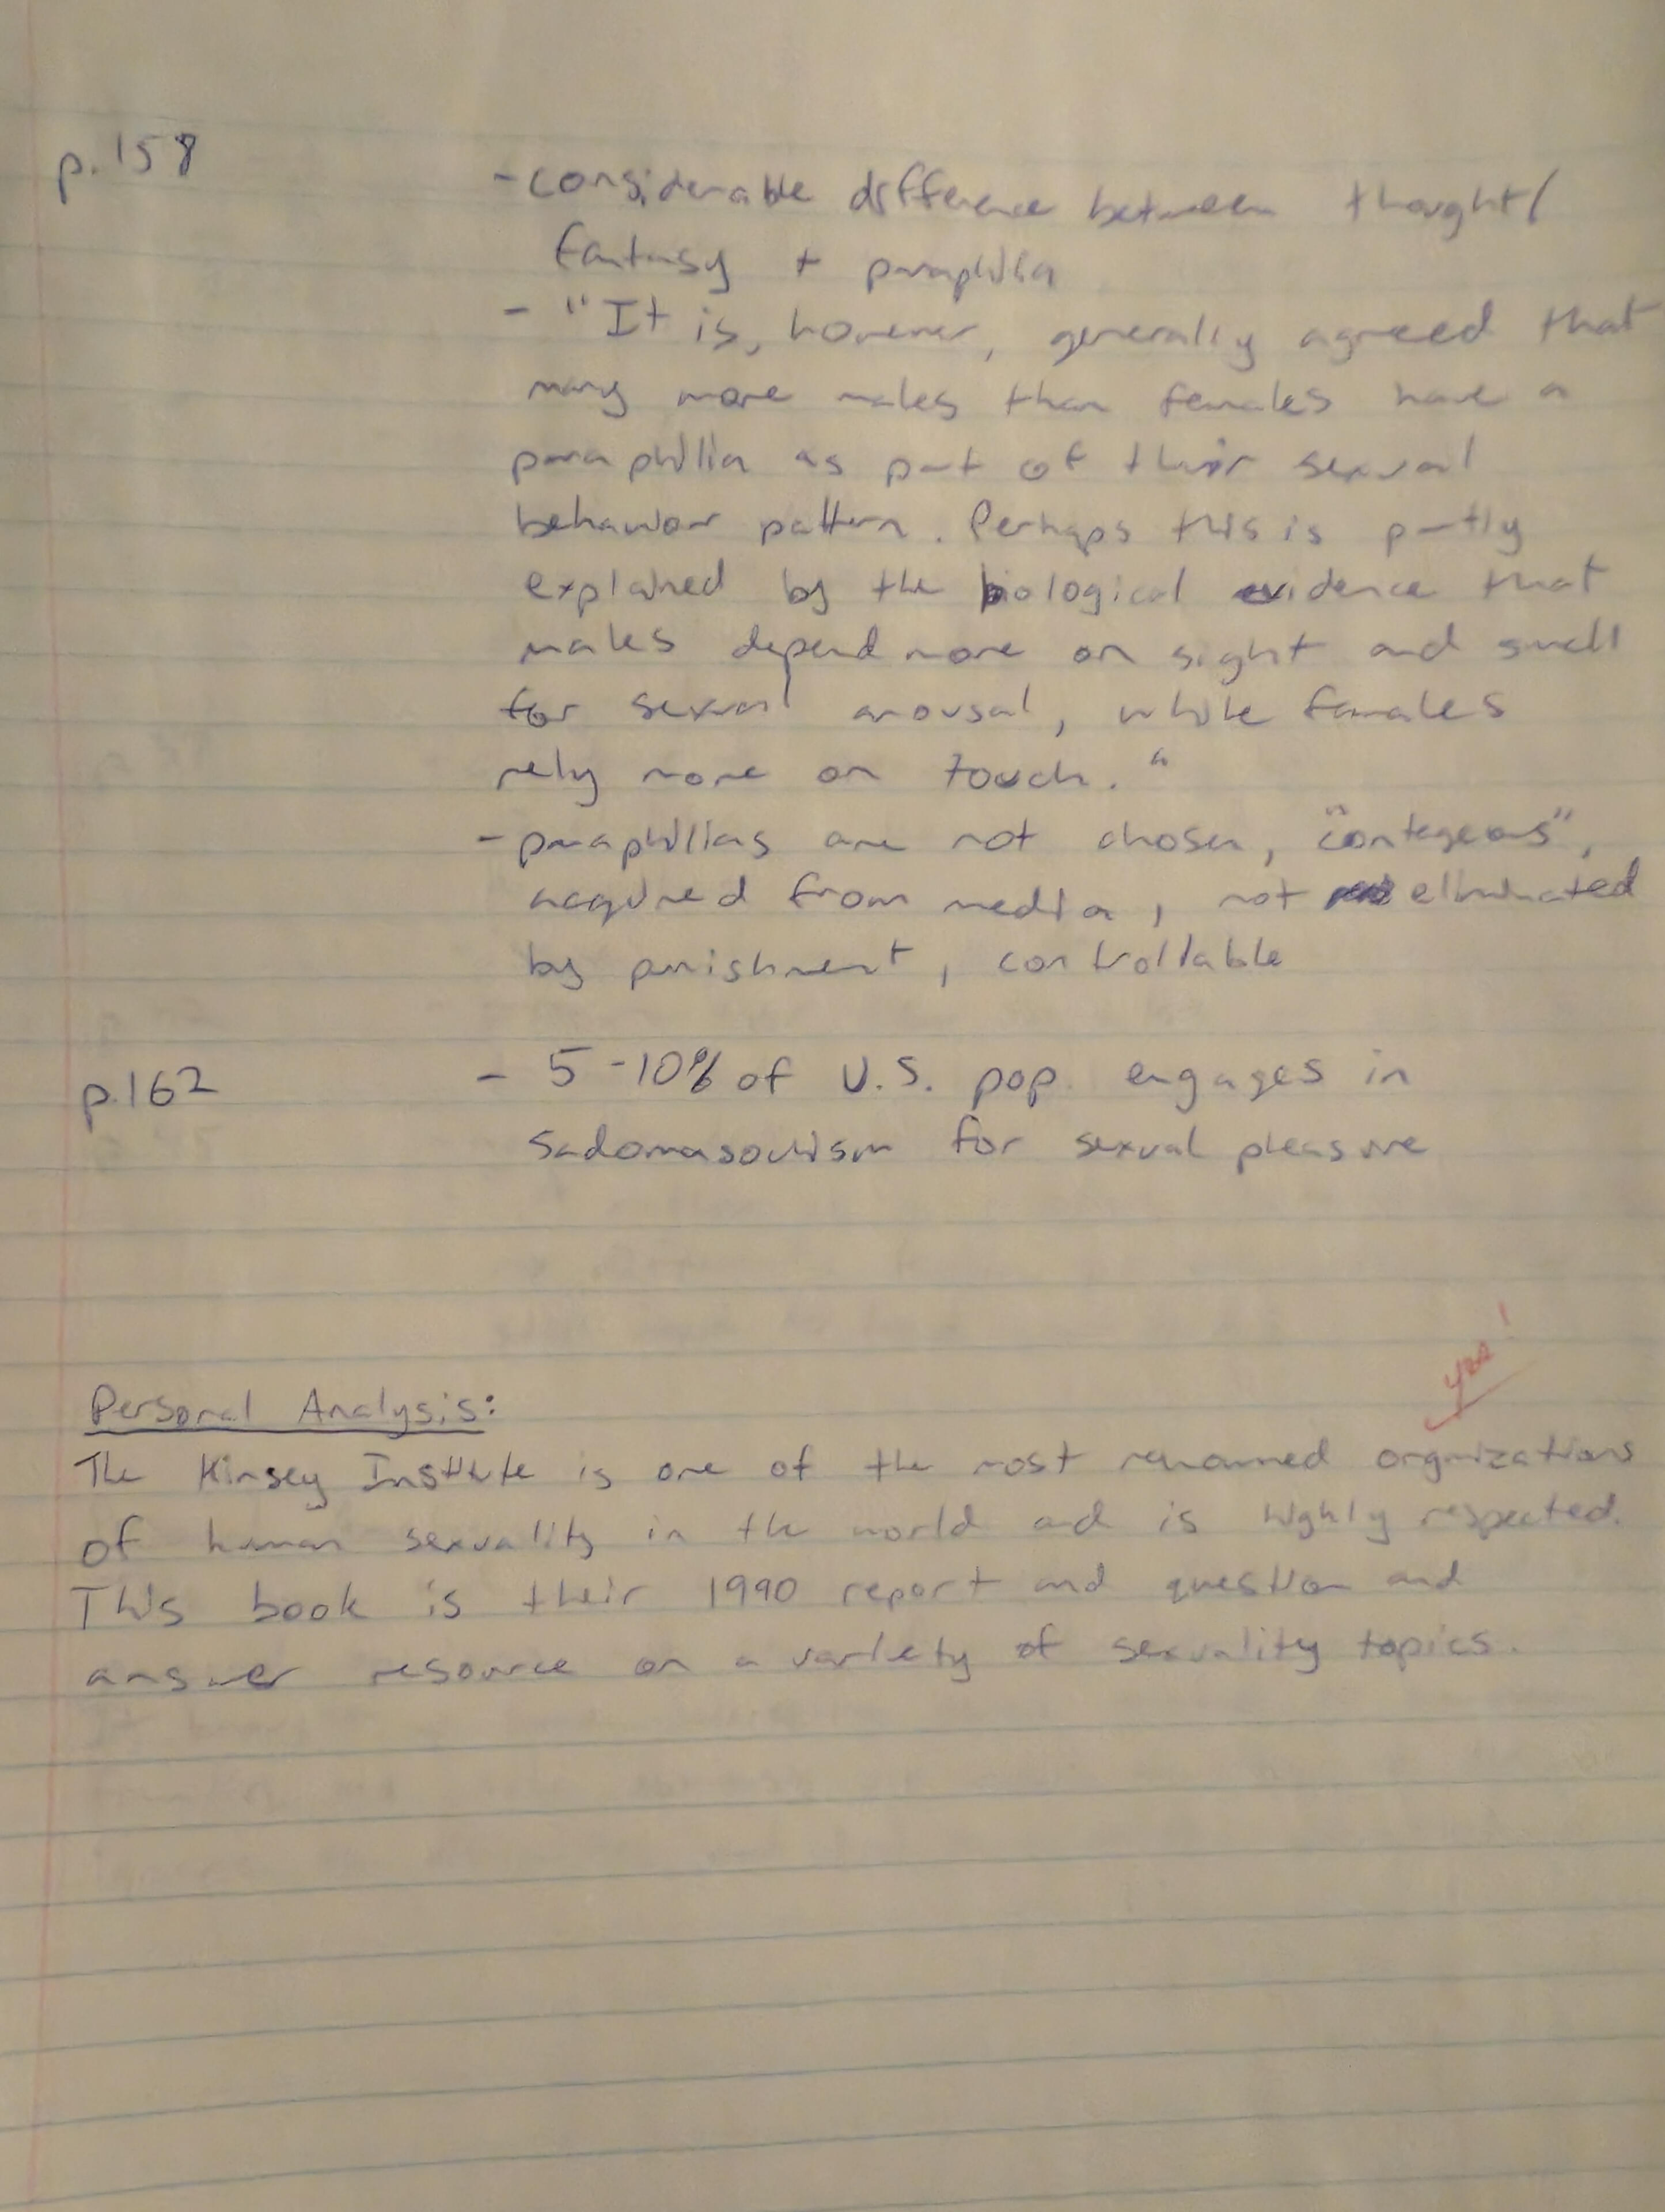 p.158
- considerable difference between thought/
fantasy + paraphilia
- "It is, however, generally agreed that
many more males than females have a
paraphilia as part of their sexual
behavior pattern. Perhaps this is partly
explained by the biological evidence that
males depend more on sight and smell
for sexual arousal, while females
rely more on touch."
- paraphilias are not chosen, "contageous",
acquired from media, not eliminated
by punishment, controllable
p.162
- 5-10% of U.S. pop. engages in
sadomasochism for sexual pleasure
yes!
Personal Analysis:
The Kinsey Institute is one of the most renowned organizations
of human sexuality in the world and is highly respected.
This book is their 1990 report and question and
answer resource on a variety of sexuality topics.